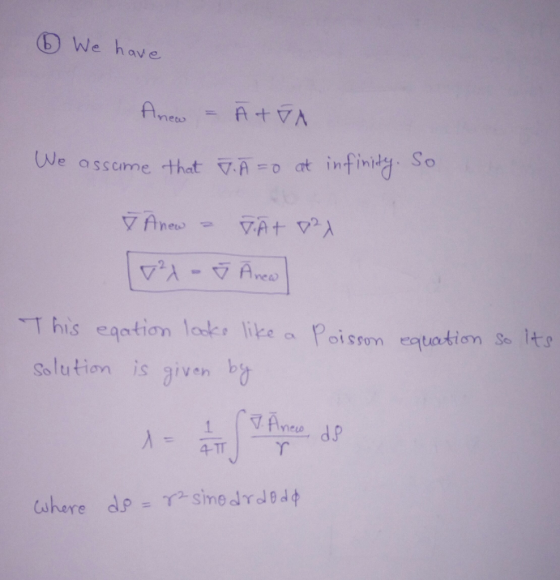 ⓑ We have
Anew = Ā + ∇̄Λ
We assume that ∇̄.Ā = 0 at infinity. So
∇̄ Ānew = ∇̄.Ā + ∇²λ
∇²λ = ∇̄ Ānew
This eqation looks like a Poisson equation so its
solution is given by
λ = 1/4π ∫ ∇̄.Ānew/r dρ
where dρ = r² sinθdrdθdϕ